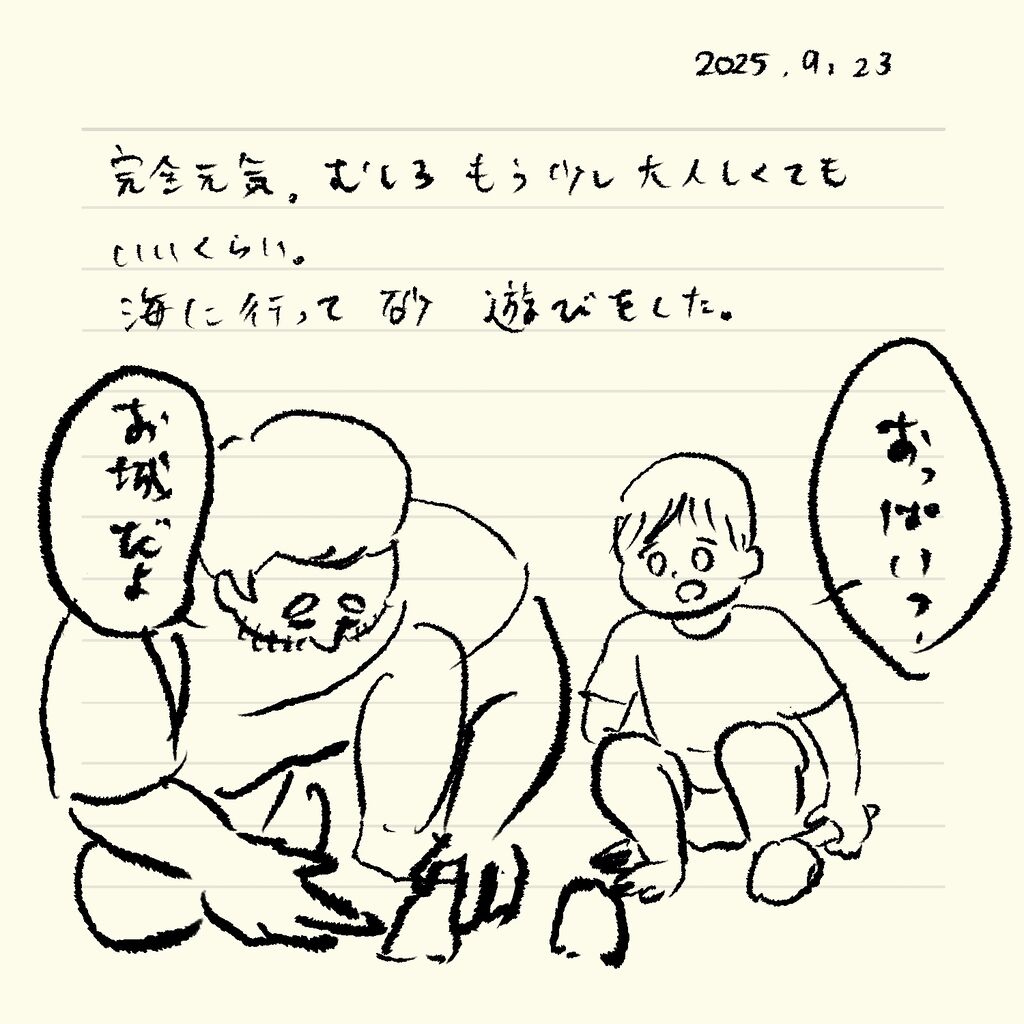 2025.9.23
完全元気。むしろもう少し大人しくても
いいくらい。
海に行って砂遊びをした。
お城だよ
おっぱいっ